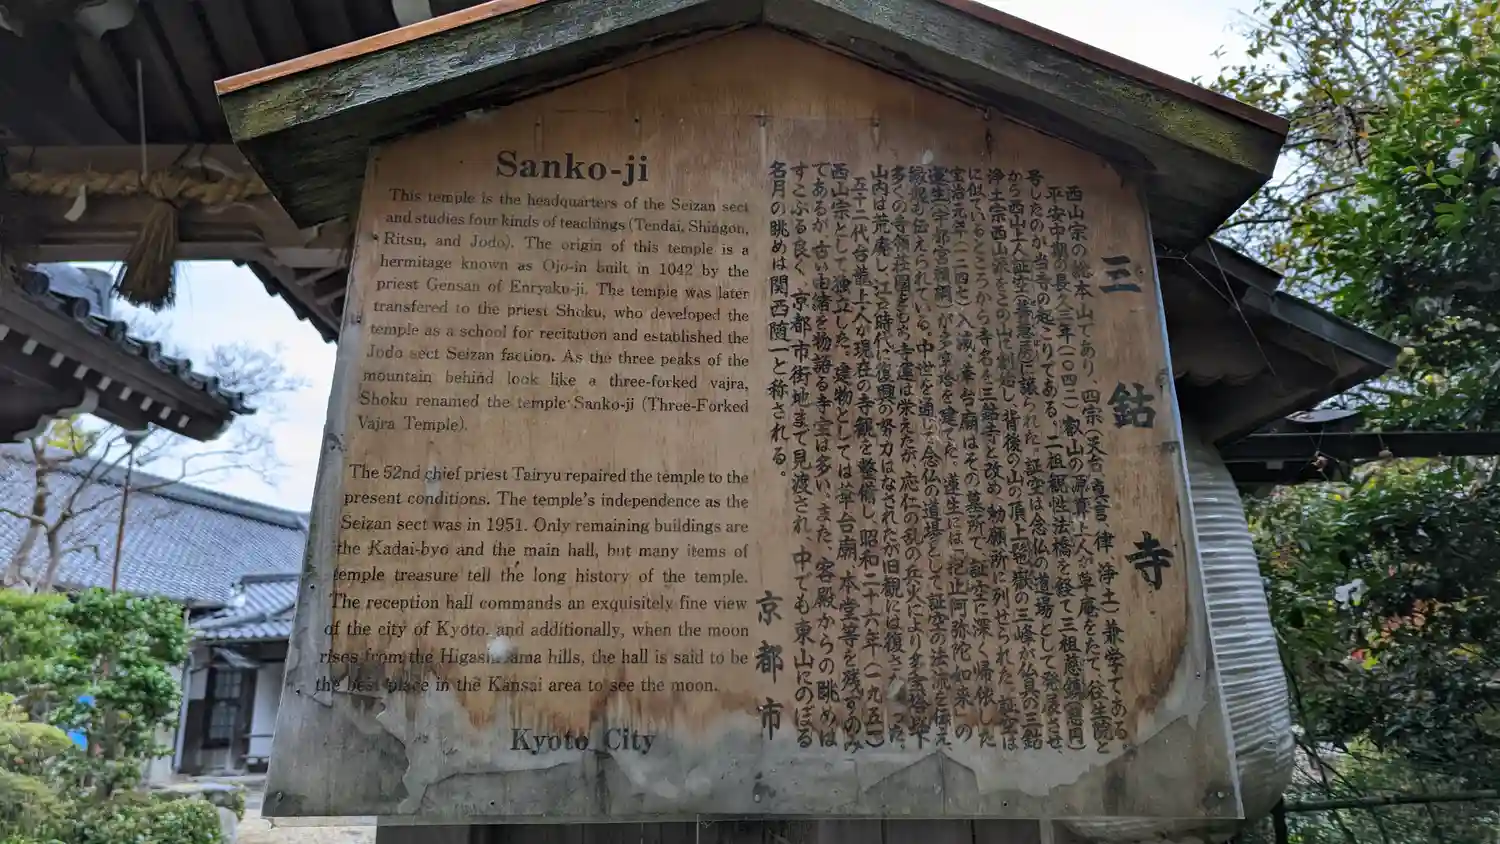 Sanko-ji
This temple is the headquarters of the Seizan sect
and studies four kinds of teachings (Tendai, Shingon,
Ritsu, and Jodo). The origin of this temple is a
hermitage known as Ojo-in built in 1042 by the
priest Gensan of Enryaku-ji. The temple was later
transfered to the priest Shoku, who developed the
temple as a school for recitation and established the
Jodo sect Seizan faction. As the three peaks of the
mountain behind look like a three-forked vajra,
Shoku renamed the temple Sanko-ji (Three-Forked
Vajra Temple).
The 52nd chief priest Tairyu repaired the temple to the
present conditions. The temple's independence as the
Seizan sect was in 1951. Only remaining buildings are
the Kadai-byo and the main hall, but many items of
temple treasure tell the long history of the temple.
The reception hall commands an exquisitely fine view
of the city of Kyoto, and additionally, when the moon
rises from the Higashiyama hills, the hall is said to be
the best place in the Kansai area to see the moon.
Kyoto City
三鈷寺
西山宗の総本山であり、四宗(天台、真言、律、浄土)兼学である。
平安中期の長久三年(一〇四二)叡山の源算上人が草庵をたて、往生院と
号したのが当寺の起こりである。二祖観性法橋を経て三祖慈鎮(慈円)
から西山上人証空(善恵房)に譲られた。証空は念仏の道場として発展させ、
浄土宗西山派をこの山で創始し、背後の山の頂上の三峰が仏具の三鈷
に似ているところから寺名を三鈷寺と改め、勅願所に列せられた。証空は
宝治元年(一二四七)入滅、華台廟はその墓所で、証空に深く帰依した
蓮生(宇都宮頼綱)が多宝塔を建てた。蓮生には「抱止阿弥陀如来」の
縁起も伝えられている。中世を通じ念仏の道場として、証空の法流を伝え、
多くの寺領荘園をもち寺運は栄えたが、応仁の乱の兵火により多宝塔以下
山内は荒廃し、江戸時代に復興の努力はなされたが旧観には復さなかった。
五十二代台龍上人が現在の寺観を整備し、昭和二十六年(一九五一)
西山宗として独立した。建物としては華台廟、本堂等を残すのみ
であるが、古い由緒を物語る寺宝は多い。また、客殿からの眺めは
すこぶる良く、京都市街地まで見渡され、中でも東山にのぼる
名月の眺めは関西随一と称される。
京都市